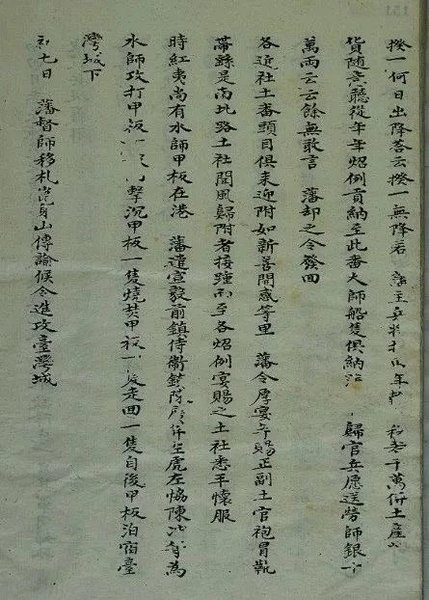 揆一何日出降荅云揆一無降若 年 若干萬併土產
貨隨去聽從年年炤例貢納至此番大師船隻俱納 歸官兵愿送勞師銀十
萬兩云云餘無敢言　藩却之令發回
各近社土番頭目俱来迎附如新善開感等里　藩令厚宴并賜正副土官袍冒靴
帶繇是南北路土社聞風歸附者接踵而至各炤例宴賜之土社悉平懷服
時紅夷尚有水師甲板在港　藩遣宣毅前鎮侍衛鎮陳 左虎左協陳 為
水師攻打甲板一 擊沉甲板一隻燒焚甲板一 走回一隻自後甲板泊宿臺
灣城下
七日　藩督師移札崑身山傳諭候令進攻臺灣城